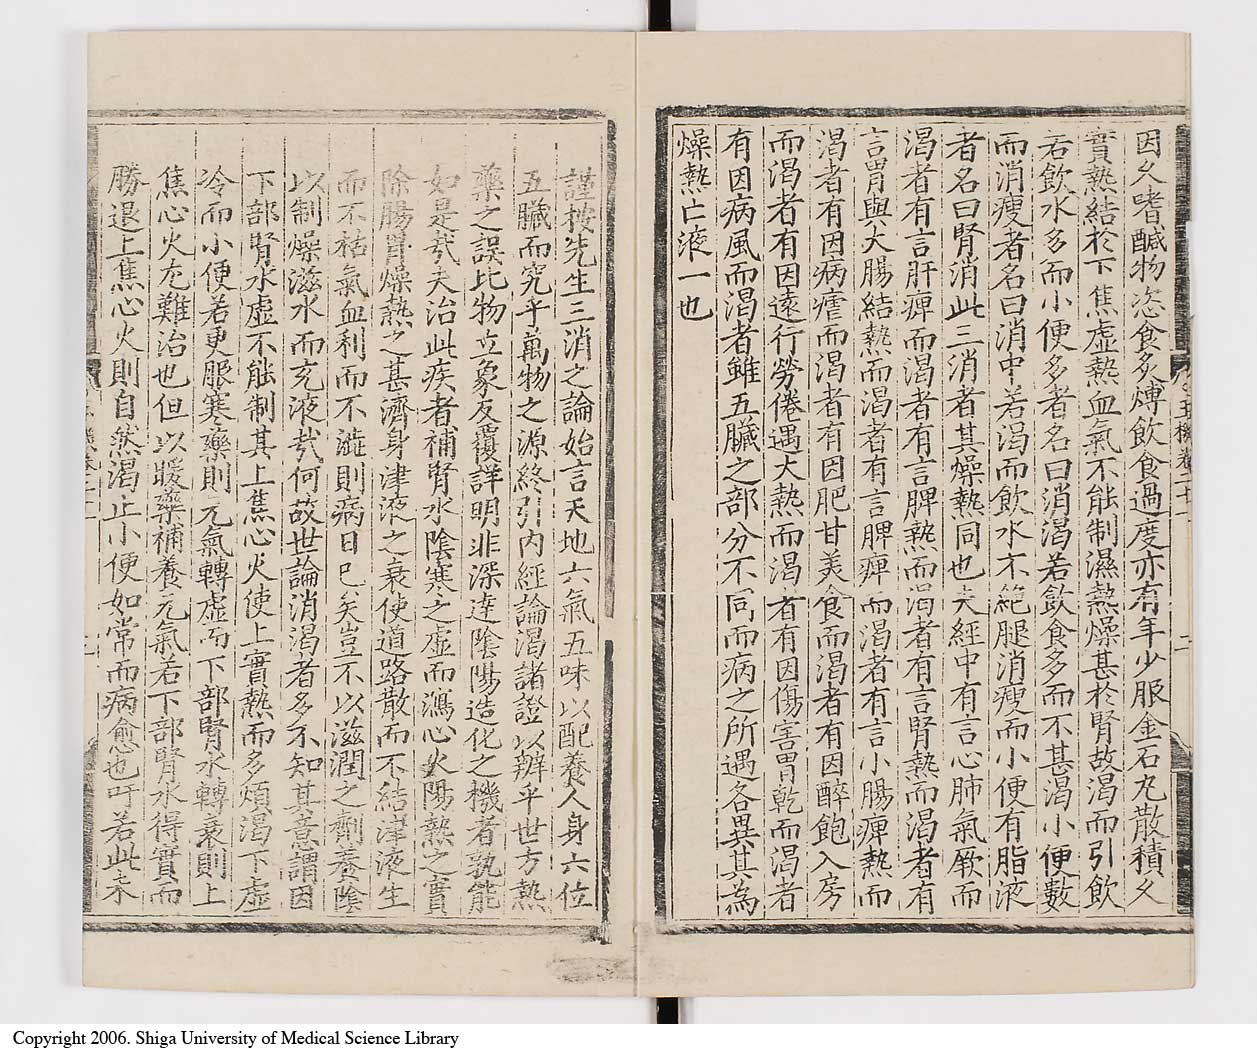 因久嗜鹹物恣食炙煿飲食過度亦有年少服金石丸散積久
實熱結於下焦虛熱血氣不能制濕熱燥甚於腎故渴而引飲
若飲水多而小便多者名曰消渴若飲食多而不甚渴小便數
而消瘦者名曰消中若渴而飲水不絕腿消瘦而小便有脂液
者名曰腎消此三消者其燥熱同也夫經中有言心肺氣厥而
渴者有言肝痺而渴者有言脾熱而渴者有言腎熱而渴者有
言胃與大腸結熱而渴者有言脾痺而渴者有言小腸痺熱而
渴者有因病瘧而渴者有因肥甘美食而渴者有因醉飽入房
而渴者有因遠行勞倦遇大熱而渴者有因傷害胃乾而渴者
有因病風而渴者雖五臟之部分不同而病之所遇各異其為
燥熱亡液一也
謹按先生三消之論始言天地六氣五味以配養人身六位
五臟而究乎萬物之源終引內經論渴諸證以辨乎世方熱
藥之誤比物立象反覆詳明非深達陰陽造化之機者孰能
如是哉夫治此疾者補腎水陰寒之虛而瀉心火陽熱之實
除腸胃燥熱之甚濟身津液之衰使道路散而不結津液生
而不枯氣血利而不澁則病日已矣豈不以滋潤之劑養陰
以制燥滋水而充液哉何故世論消渴者多不知其意謂因
下部腎水虛不能制其上焦心火使上實熱而多煩渴下虛
冷而小便若更服寒藥則元氣轉虛而下部腎水轉衰則上
焦心火尤難治也但以暖藥補養元氣若下部腎水得實而
勝退上焦心火則自然渴止小便如常而病愈也吁若此未
Copyright 2006. Shiga University of Medical Science Library